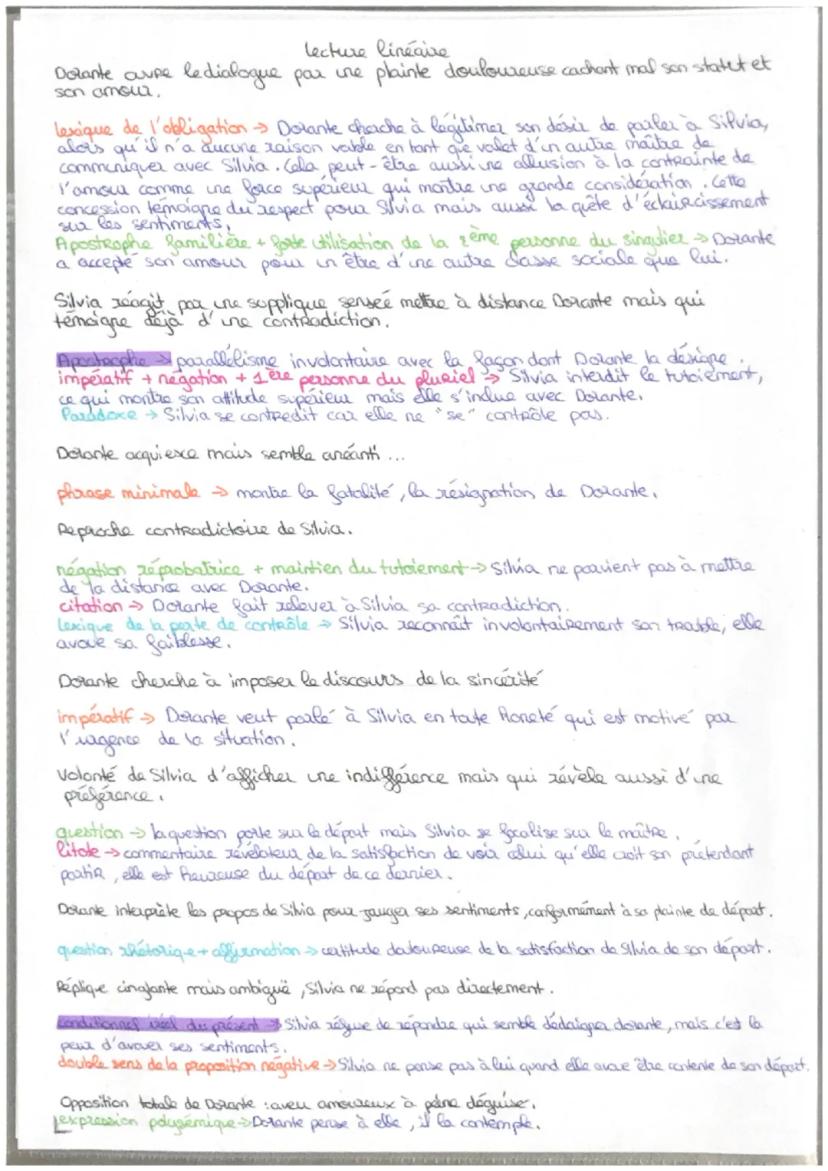 lecture linéaire
Dorante ouvre le dialogue par une plainte douloureuse cachant mal son statut et
son amour.
lexique de l'obligation → Dorante cherche à légitimer son désir de parler à Silvia,
alors qu'il n'a aucune raison valable en tant que valet d'un autre maître de
communiquer avec Silvia. Cela peut-être aussi une allusion à la contrainte de
l'amour comme une force supérieur qui montre une grande considération. Cette
concession témoigne du respect pour Silvia mais aussi la quête d'éclaircissement
sur les sentiments.
Apostrophe familière + forte utilisation de la 2ème personne du singulier → Dorante
a accepté son amour pour un être d'une autre classe sociale que lui.
Silvia réagit par une supplique senseé mettre à distance Dorante mais qui
témoigne déjà d'une contradiction.
Apostrophe → parallélisme involontaire avec la façon dont Dorante la désigne.
impératif + négation + 1ère personne du pluriel → Silvia interdit le tutoiement,
ce qui montre son attitude supérieur mais elle s'inclue avec Dorante.
Paradoxe → Silvia se contredit car elle ne "se" contrôle pas.
Dorante acquiesce mais semble anéanti ...
phrase minimale → montre la fatalité, la résignation de Dorante.
Reproche contradictoire de Silvia.
négation réprobatrice + maintien du tutoiement → Silvia ne parvient pas à mettre
de la distance avec Dorante.
citation → Dorante fait relever à Silvia sa contradiction.
Lexique de la perte de contrôle → Silvia reconnaît involontairement son trouble, elle
avoue sa faiblesse.
Dorante cherche à imposer le discours de la sincérité
impératif → Dorante veut parlé à Silvia en toute honeté qui est motivé par
l'urgence de la situation.
Volonté de Silvia d'afficher une indifférence mais qui révèle aussi d'une
préférence.
question → la question porte sur le départ mais Silvia se focalise sur le maître.
litote → commentaire révélateur de la satisfaction de voir celui qu'elle croit son prétendant
partir, elle est heureuse du départ de ce dernier.
Dorante interprète les propos de Silvia pour jauger ses sentiments, conformément à sa plainte de départ.
question rhétorique + affirmation → certitude douloureuse de la satisfaction de Silvia de son départ.
Réplique cinglante mais ambiguë, Silvia ne répond pas directement.
conditionnel irréel du présent → Silvia refuse de répondre qui semble dédaigner dorante, mais c'est la
peur d'avouer ses sentiments.
double sens de la proposition négative → Silvia ne pense pas à lui quand elle avoue être contente de son départ.
Opposition totale de Dorante : aveu amoureux à peine déguisé.
expression polysémique → Dorante pense à elle, il la contemple.